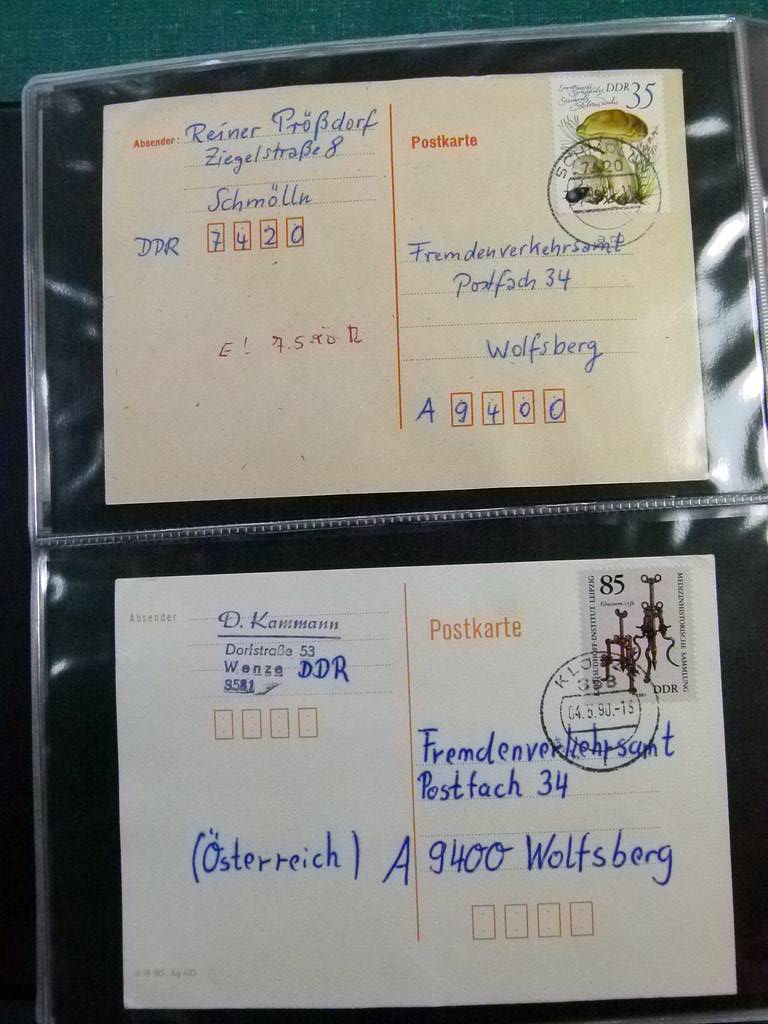 Absender: Reiner Prößdorf
Ziegelstraße 8
Schmölln
DDR 7420
Postkarte
DDR 35
7420
Fremdenverkehrsamt
Postfach 34
Wolfsberg
A 9400
E!
Absender
D. Kammann
Dorfstraße 53
Wenze DDR
3581
Postkarte
85
MEDIZINHISTORISCHE SAMMLUNG
KARL-SUDHOFF-INSTITUT LEIPZIG
DDR
04.5.90.-15
Fremdenverkehrsamt
Postfach 34
(Österreich) A 9400 Wolfsberg